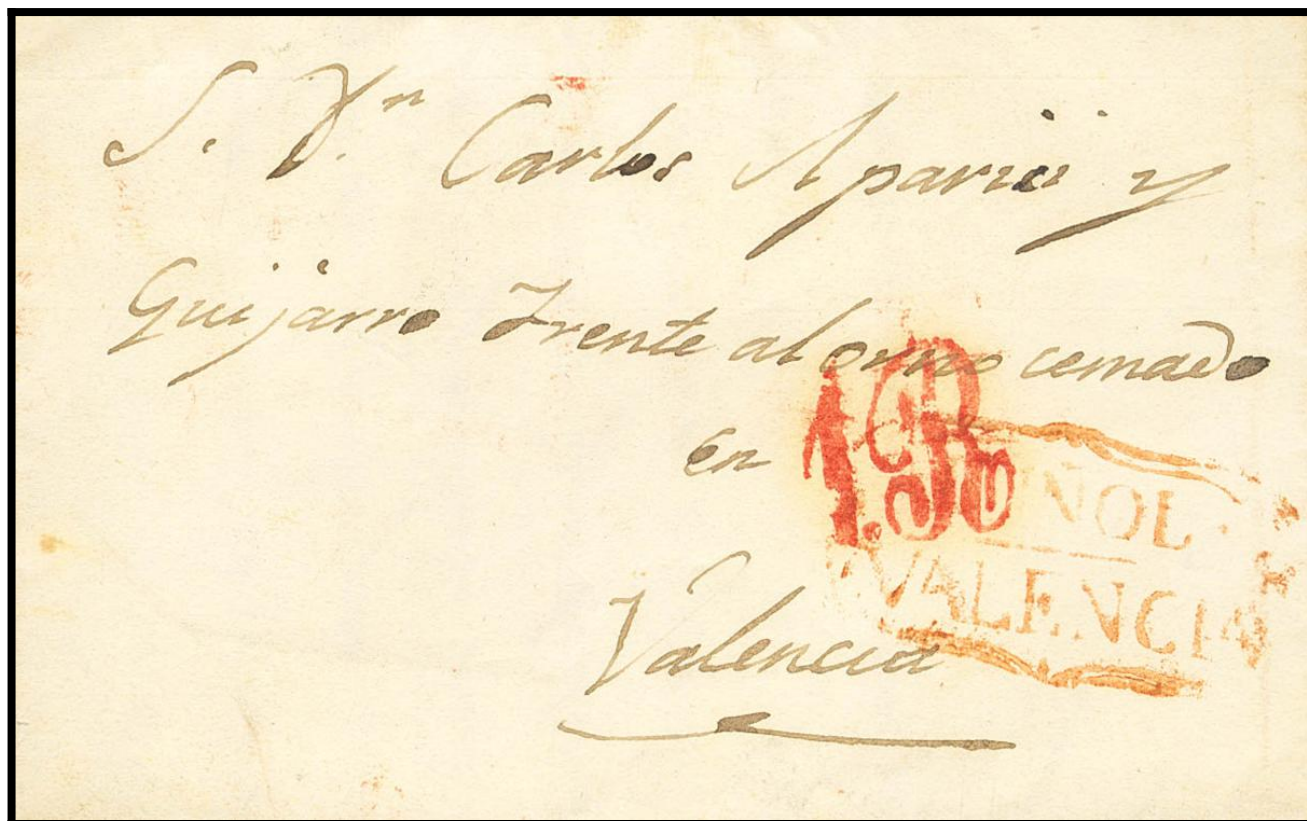 S. Dn Carlos Aparici y
Quijarro Frente al orno cerrado
en
Valencia
1.R
ÑOL
VALENCIA